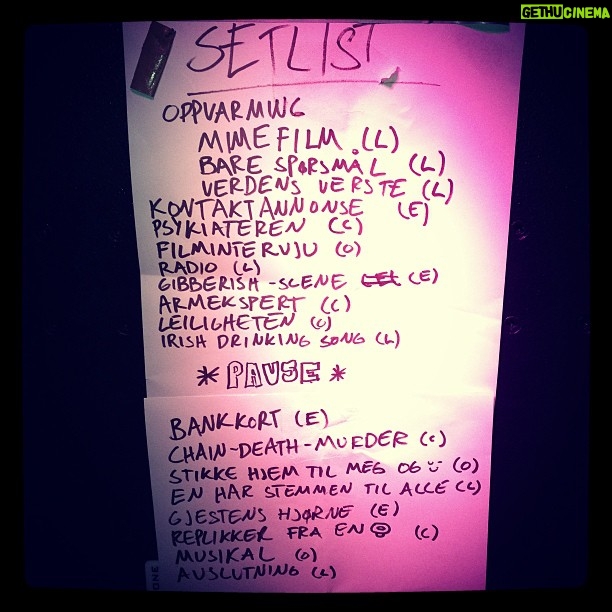 GETHUCINEMA
SETLIST
OPPVARMING
MIMEFILM (L)
BARE SPØRSMÅL (L)
VERDENS VERSTE (L)
KONTAKTANNONSE (E)
PSYKIATEREN (C)
FILMINTERVJU (O)
RADIO (L)
GIBBERISH-SCENE (E)
ARMEKSPERT (C)
LEILIGHETEN (O)
IRISH DRINKING SONG (L)
* PAUSE *
BANKKORT (E)
CHAIN-DEATH-MURDER (C)
STIKKE HJEM TIL MEG OG (O)
EN HAR STEMMEN TIL ALLE (L)
GJESTENS HJØRNE (E)
REPLIKKER FRA EN (C)
MUSIKAL (O)
AVSLUTNING (L)